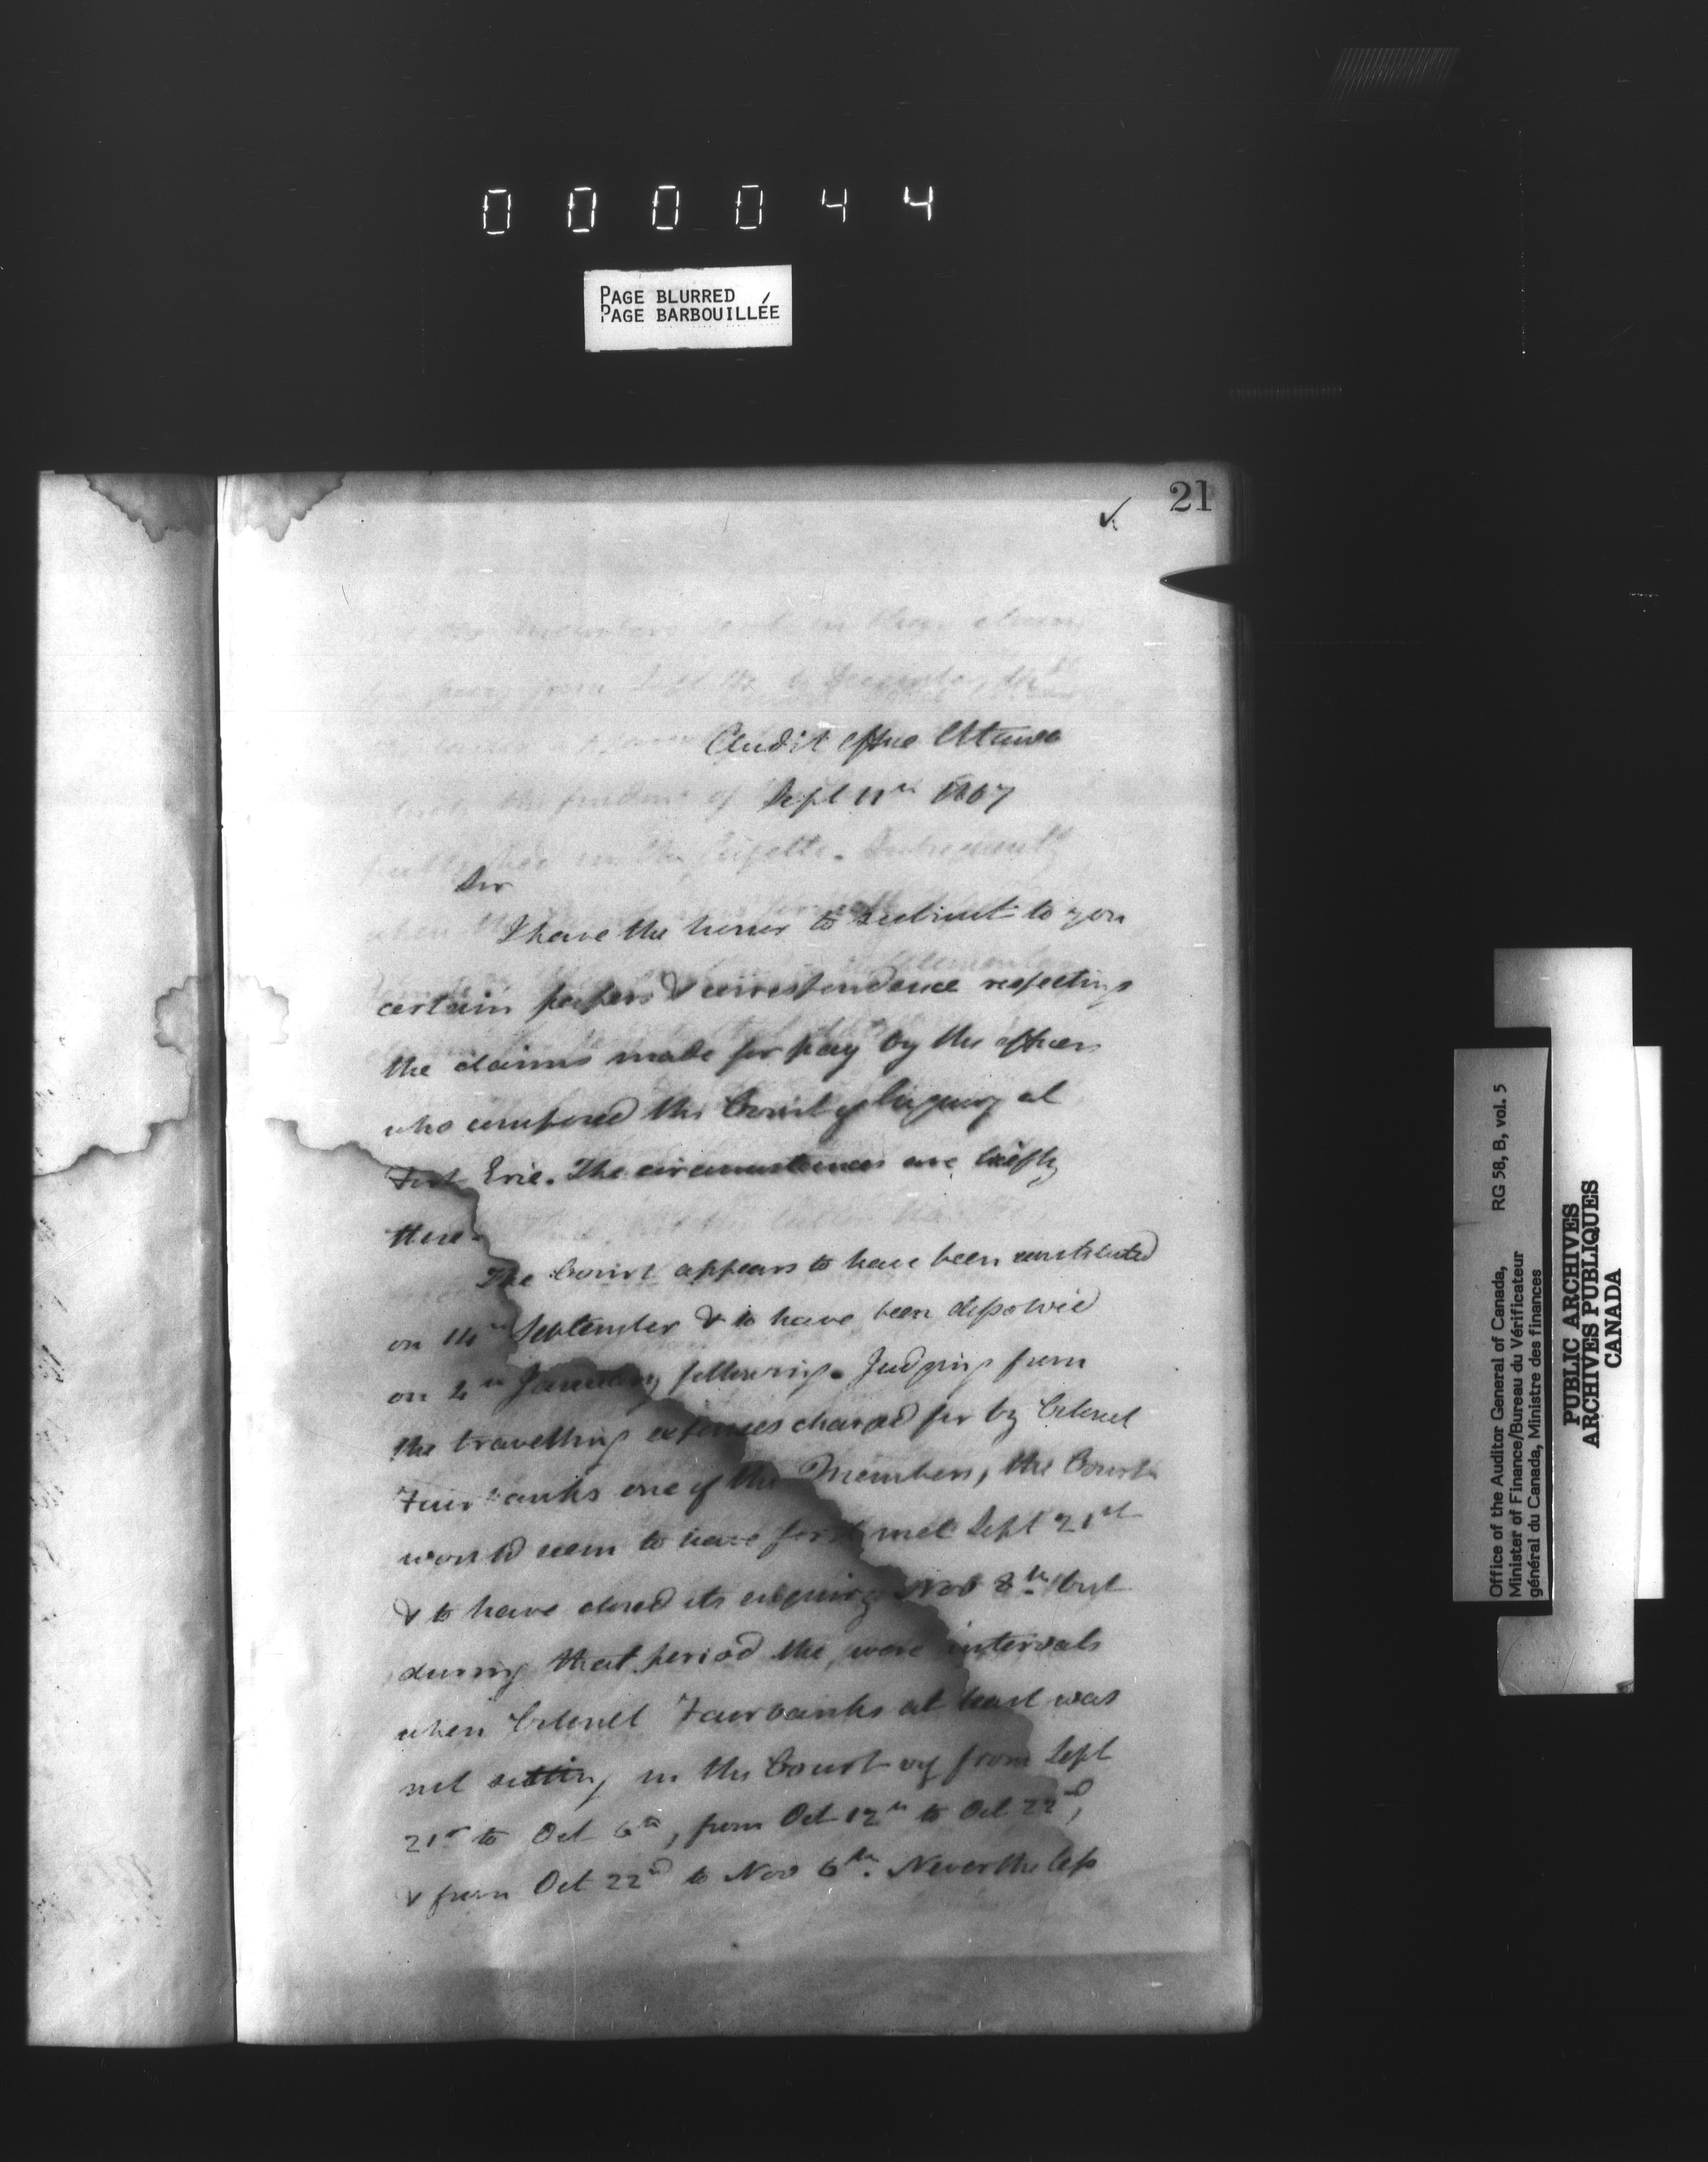 000044
PAGE BLURRED
PAGE BARBOUILLÉE
21
Audit Office Ottawa
Sept 11th 1867
Sir
I have the honor to submit to you
certain papers & correspondence respecting
the claims made for pay by the officers
who composed the Court of Enquiry at
Fort Erie. The circumstances are briefly
these.
The Court appears to have been constituted
on 14th September & to have been dissolved
on 4th January following. Judging from
the travelling expenses charged for by Colonel
Fairbanks one of the Members, the Court
would seem to have first met Sept 21st
& to have closed its enquiry Nov 8th but
during that period the, were intervals
when Colonel Fairbanks at least was
not sitting in the Court vz from Sept
21st to Oct 6th, from Oct 12th to Oct 22nd,
& from Oct 22nd to Nov 6th. Nevertheless
Office of the Auditor General of Canada, RG 58, B, vol. 5
Minister of Finance/Bureau du Vérificateur
général du Canada, Ministre des finances
PUBLIC ARCHIVES
ARCHIVES PUBLIQUES
CANADA